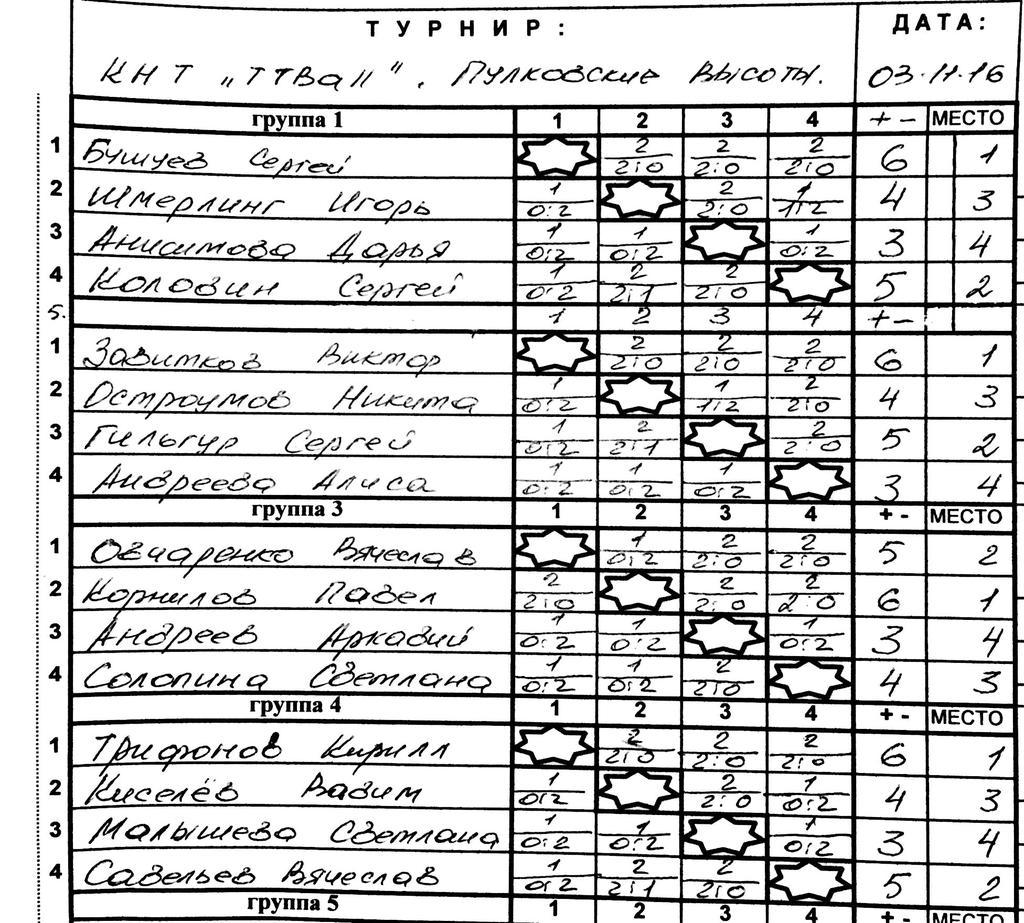 ТУРНИР: ДАТА:
КНТ „ТТВall". Пулковские Высоты. 03.11.16
группа 1 1 2 3 4 + - МЕСТО
1 Бушуев Сергей 2 2:0 2 2:0 2 2:0 6 1
2 Шмерлинг Игорь 1 0:2 2 2:0 1 1:2 4 3
3 Анисимова Дарья 1 0:2 1 0:2 1 0:2 3 4
4 Коловин Сергей 1 0:2 2 2:1 2 2:0 5 2
5. 1 2 3 4 + -
1 Завитков Виктор 2 2:0 2 2:0 2 2:0 6 1
2 Остроумов Никита 1 0:2 1 1:2 2 2:0 4 3
3 Гильгур Сергей 1 0:2 2 2:1 2 2:0 5 2
4 Андреева Алиса 1 0:2 1 0:2 1 0:2 3 4
группа 3 1 2 3 4 + - МЕСТО
1 Овчаренко Вячеслав 1 0:2 2 2:0 2 2:0 5 2
2 Корнилов Павел 2 2:0 2 2:0 2 2:0 6 1
3 Андреев Аркадий 1 0:2 1 0:2 1 0:2 3 4
4 Солопина Светлана 1 0:2 1 0:2 2 2:0 4 3
группа 4 1 2 3 4 + - МЕСТО
1 Трифонов Кирилл 2 2:0 2 2:0 2 2:0 6 1
2 Киселёв Вадим 1 0:2 2 2:0 1 0:2 4 3
3 Малышева Светлана 1 0:2 1 0:2 1 0:2 3 4
4 Савельев Вячеслав 1 0:2 2 2:1 2 2:0 5 2
группа 5 1 2 3 4 + - МЕСТО